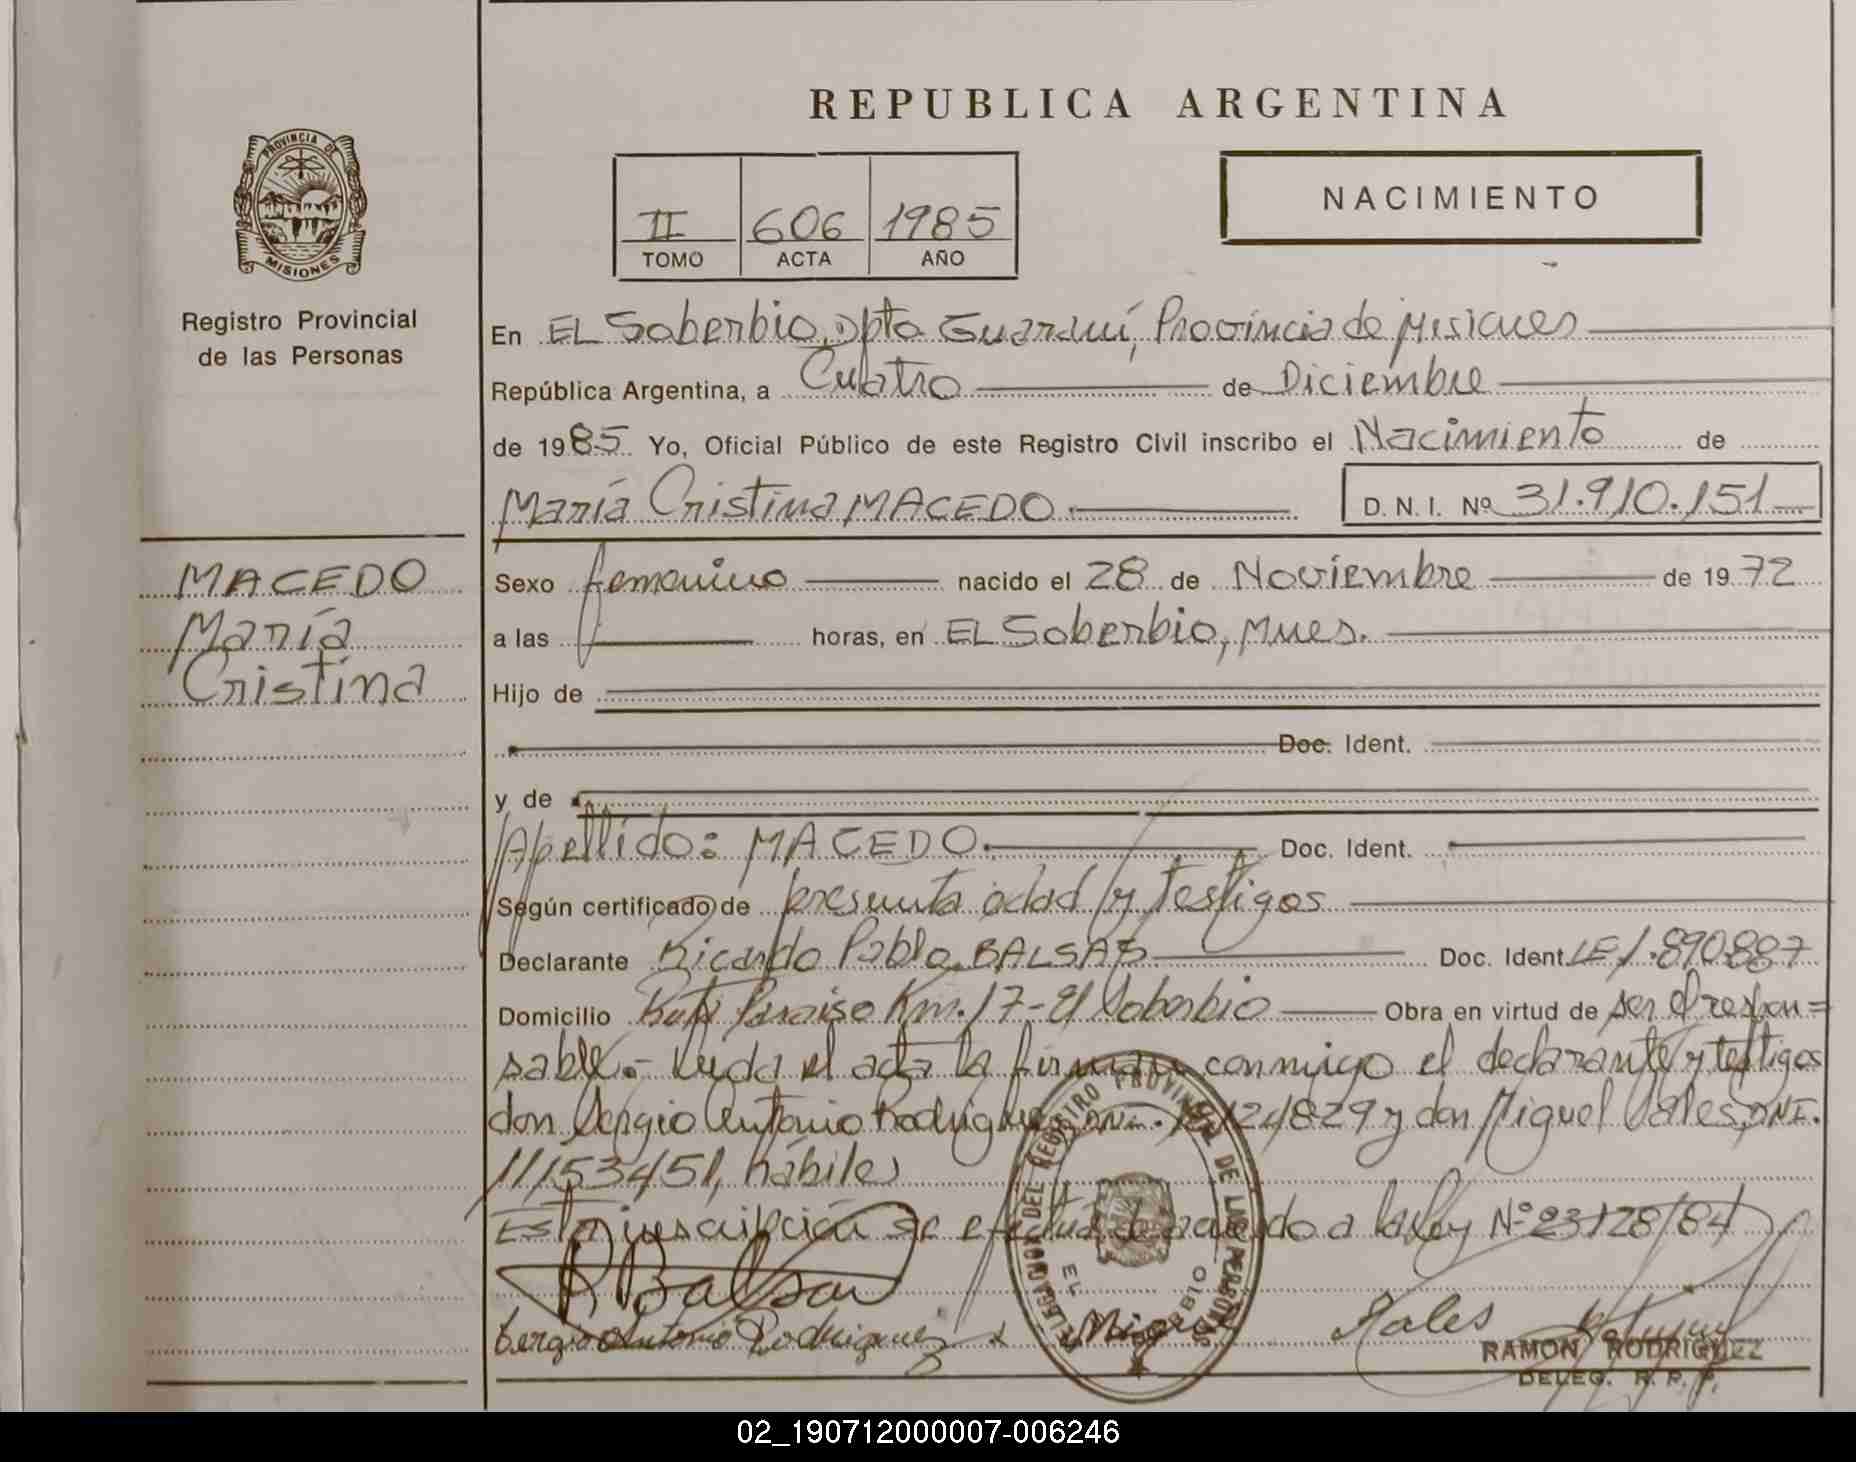 REPUBLICA ARGENTINA
PROVINCIA DE
MISIONES
Registro Provincial
de las Personas
II 606 1985
TOMO ACTA AÑO
NACIMIENTO
En EL Soberbio, Dpto Guaraní, Provincia de Misiones
República Argentina, a Cuatro de Diciembre
de 1985 Yo, Oficial Público de este Registro Civil inscribo el Nacimiento de
María Cristina MACEDO. D. N. I. Nº 31.910.151
MACEDO
María
Cristina
Sexo femenino nacido el 28 de Noviembre de 1972
a las horas, en EL Soberbio, Mnes.
Hijo de
Doc. Ident.
y de
Apellido: MACEDO. Doc. Ident.
Según certificado de presunta edad y testigos
Declarante Ricardo Pablo BALSAS Doc. Ident. LE 1.890.887
Domicilio Ruta Paraiso Km. 17 - El Soberbio Obra en virtud de ser el respon=
sable.- Leida el acta la firman conmigo el declarante y testigos
don Sergio Antonio Rodriguez DNI. y don Miguel DNI.
11153451, hábiles
Esta inscripción se efectua de acuerdo a la ley Nº 23128/84
DELEGACION DEL REGISTRO PROVINCIAL DE LAS PERSONAS
EL SOBERBIO
R Balsas
Sergio Antonio Rodriguez
RAMON RODRIGUEZ
DELEG. R. P. P.
02_190712000007-006246